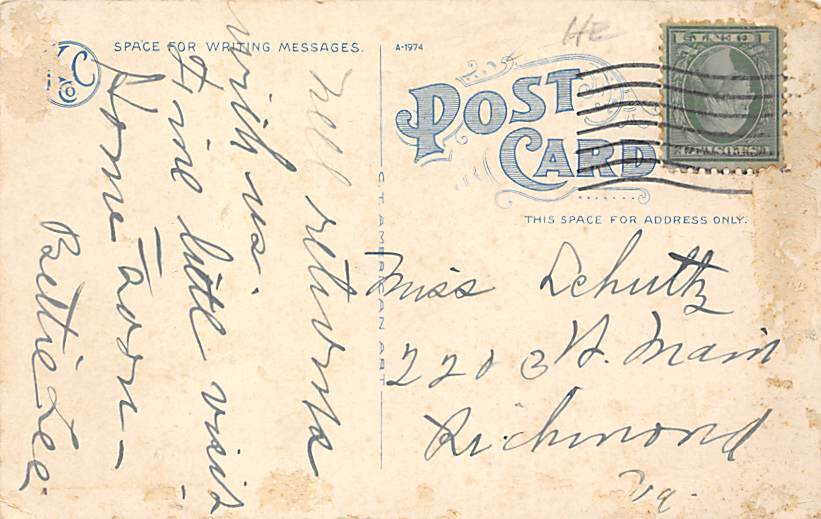 SPACE FOR WRITING MESSAGES.
A-1974
HE
POST
CARD
THIS SPACE FOR ADDRESS ONLY.
C.T. AMERICAN ART
Co
C
Nell returns
with us.
Fine little visit -
Home soon -
Bettie Lee
Miss Schultz
2203 W. Main
Richmond
Va.